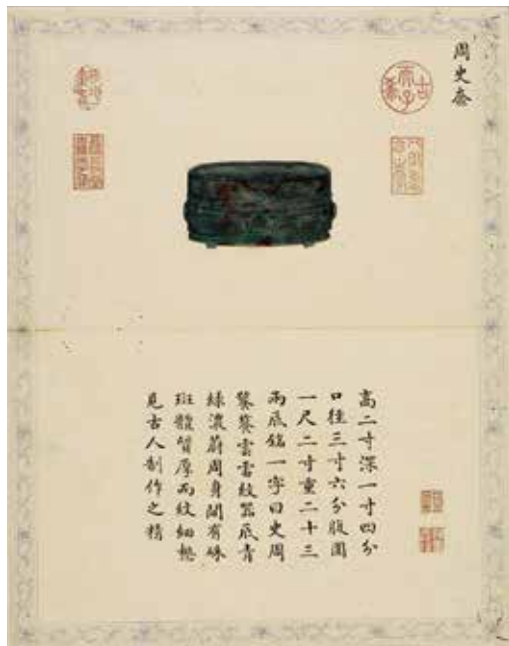 周史奩
古希天子
高二寸深一寸四分
口徑三寸六分腹圍
一尺二寸重二十三
兩底銘一字曰史周
饕餮雲雷紋器底青
綠濃蔚周身間有硃
斑體質厚而紋細想
見古人制作之精